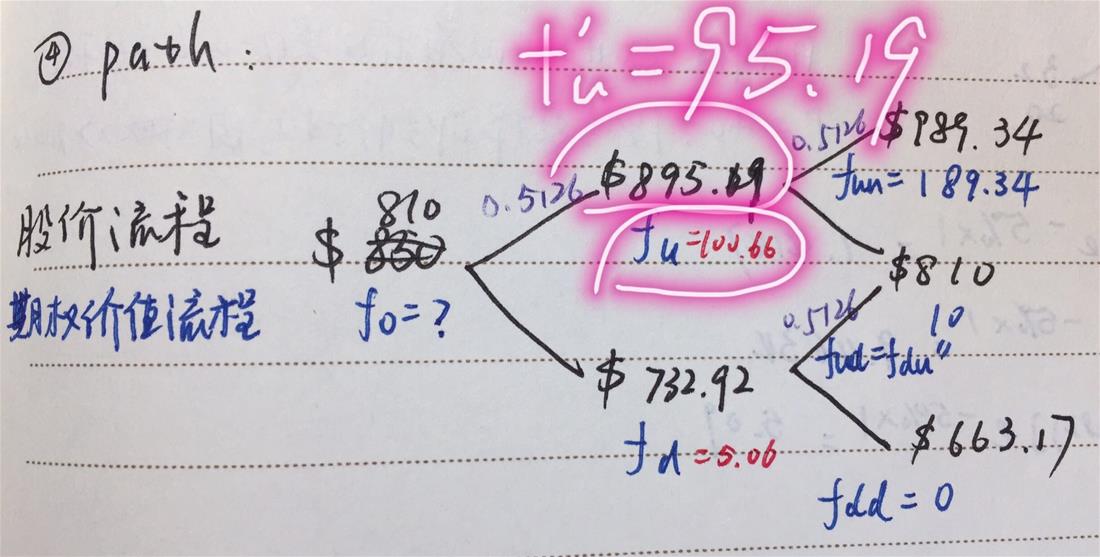 ④ path:
f'u = 95.19
0.5126 $989.34
$895.19 fuu = 189.34
0.5126
股价流程 $ 810
fu = 100.66
$810
期权价值流程 f0 = ?
0.5126 10
$ 732.92 fud = fdu"
fd = 5.06
$663.17
fdd = 0